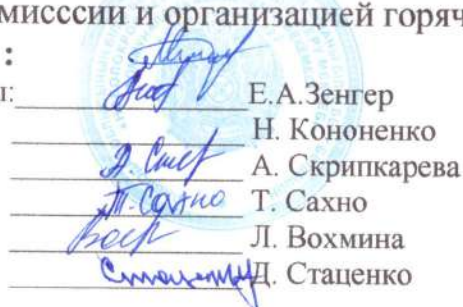 мисссии и организацией горяч
:
Е.А.Зенгер
Н. Кононенко
А. Скрипкарева
Т. Сахно Т. Сахно
Л. Вохмина
Д. Стаценко